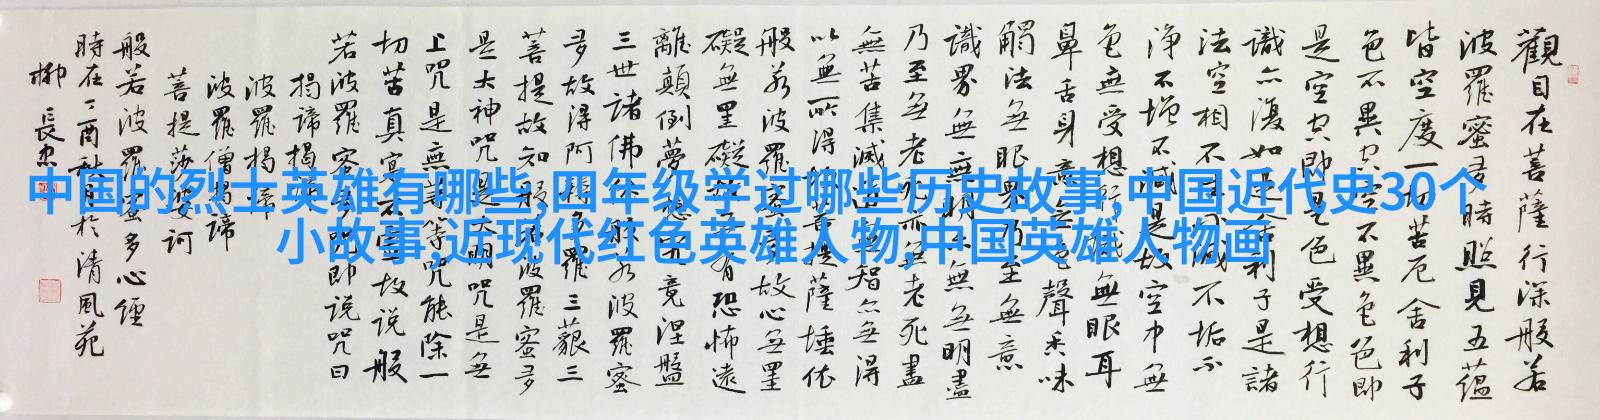 觀自在菩薩行深般若
波羅蜜多時照見五蘊
皆空度一切苦厄舍利子
色不異空空不異色色即
是空空即是色受想行
識亦復如是舍利子是諸
法空相不生不滅不垢不
淨不增不減是故空中無
色無受想行識無眼耳
鼻舌身意無色聲香味
觸法無眼界乃至無意
識界無無明亦無無明盡
乃至無老死亦無老死盡
無苦集滅道無智亦無得
以無所得故菩提薩埵依
般若波羅蜜多故心無罣
礙無罣礙故無有恐怖遠
離顛倒夢想究竟涅盤
三世諸佛依般若波羅蜜
多故得阿耨多羅三藐三
菩提故知般若波羅蜜多
是大神咒是大明咒是無
上咒是無等等咒能除一
切苦真實不虛故說般
若波羅蜜多咒即说咒曰
揭諦揭諦
波羅揭諦
波羅僧揭諦
菩提莎婆訶
般若波羅蜜多心經
時在丁酉秋月於清風苑
中国的烈士英雄有哪些,四年级学过哪些历史故事,中国近代史30个
小故事,近现代红色英雄人物,中国英雄人物画